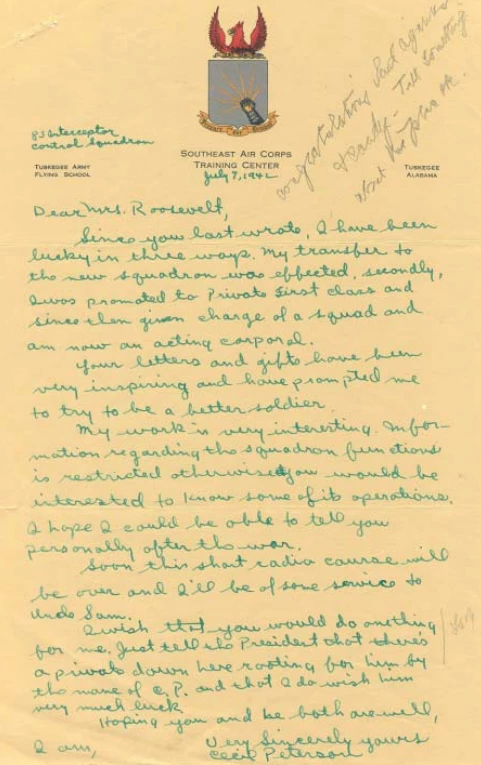 congratulations Said again
Hardy - Tell something
about
83 Interceptor
Control Squadron
SOUTHEAST AIR CORPS
TRAINING CENTER
TUSKEGEE ARMY
FLYING SCHOOL
TUSKEGEE
ALABAMA
July 7, 1942
Dear Mrs. Roosevelt,
Since you last wrote, I have been
lucky in three ways. My transfer to
the new squadron was effected, secondly,
I was promoted to Private First class and
since then given charge of a squad and
am now an acting corporal.
Your letters and gifts have been
very inspiring and have prompted me
to try to be a better soldier.
My work is very interesting. Infor-
mation regarding the squadron functions
is restricted otherwise you would be
interested to know some of its operations.
I hope I could be able to tell you
personally after the war.
Soon this short radio course will
be over and I'll be of some service to
Uncle Sam.
I wish that you would do one thing
for me. Just tell the President that there's
a private down here rooting for him by
the name of C. P. and that I do wish him
very much luck
Hoping you and he both are well,
I am, Very Sincerely yours
Cecil Peterson